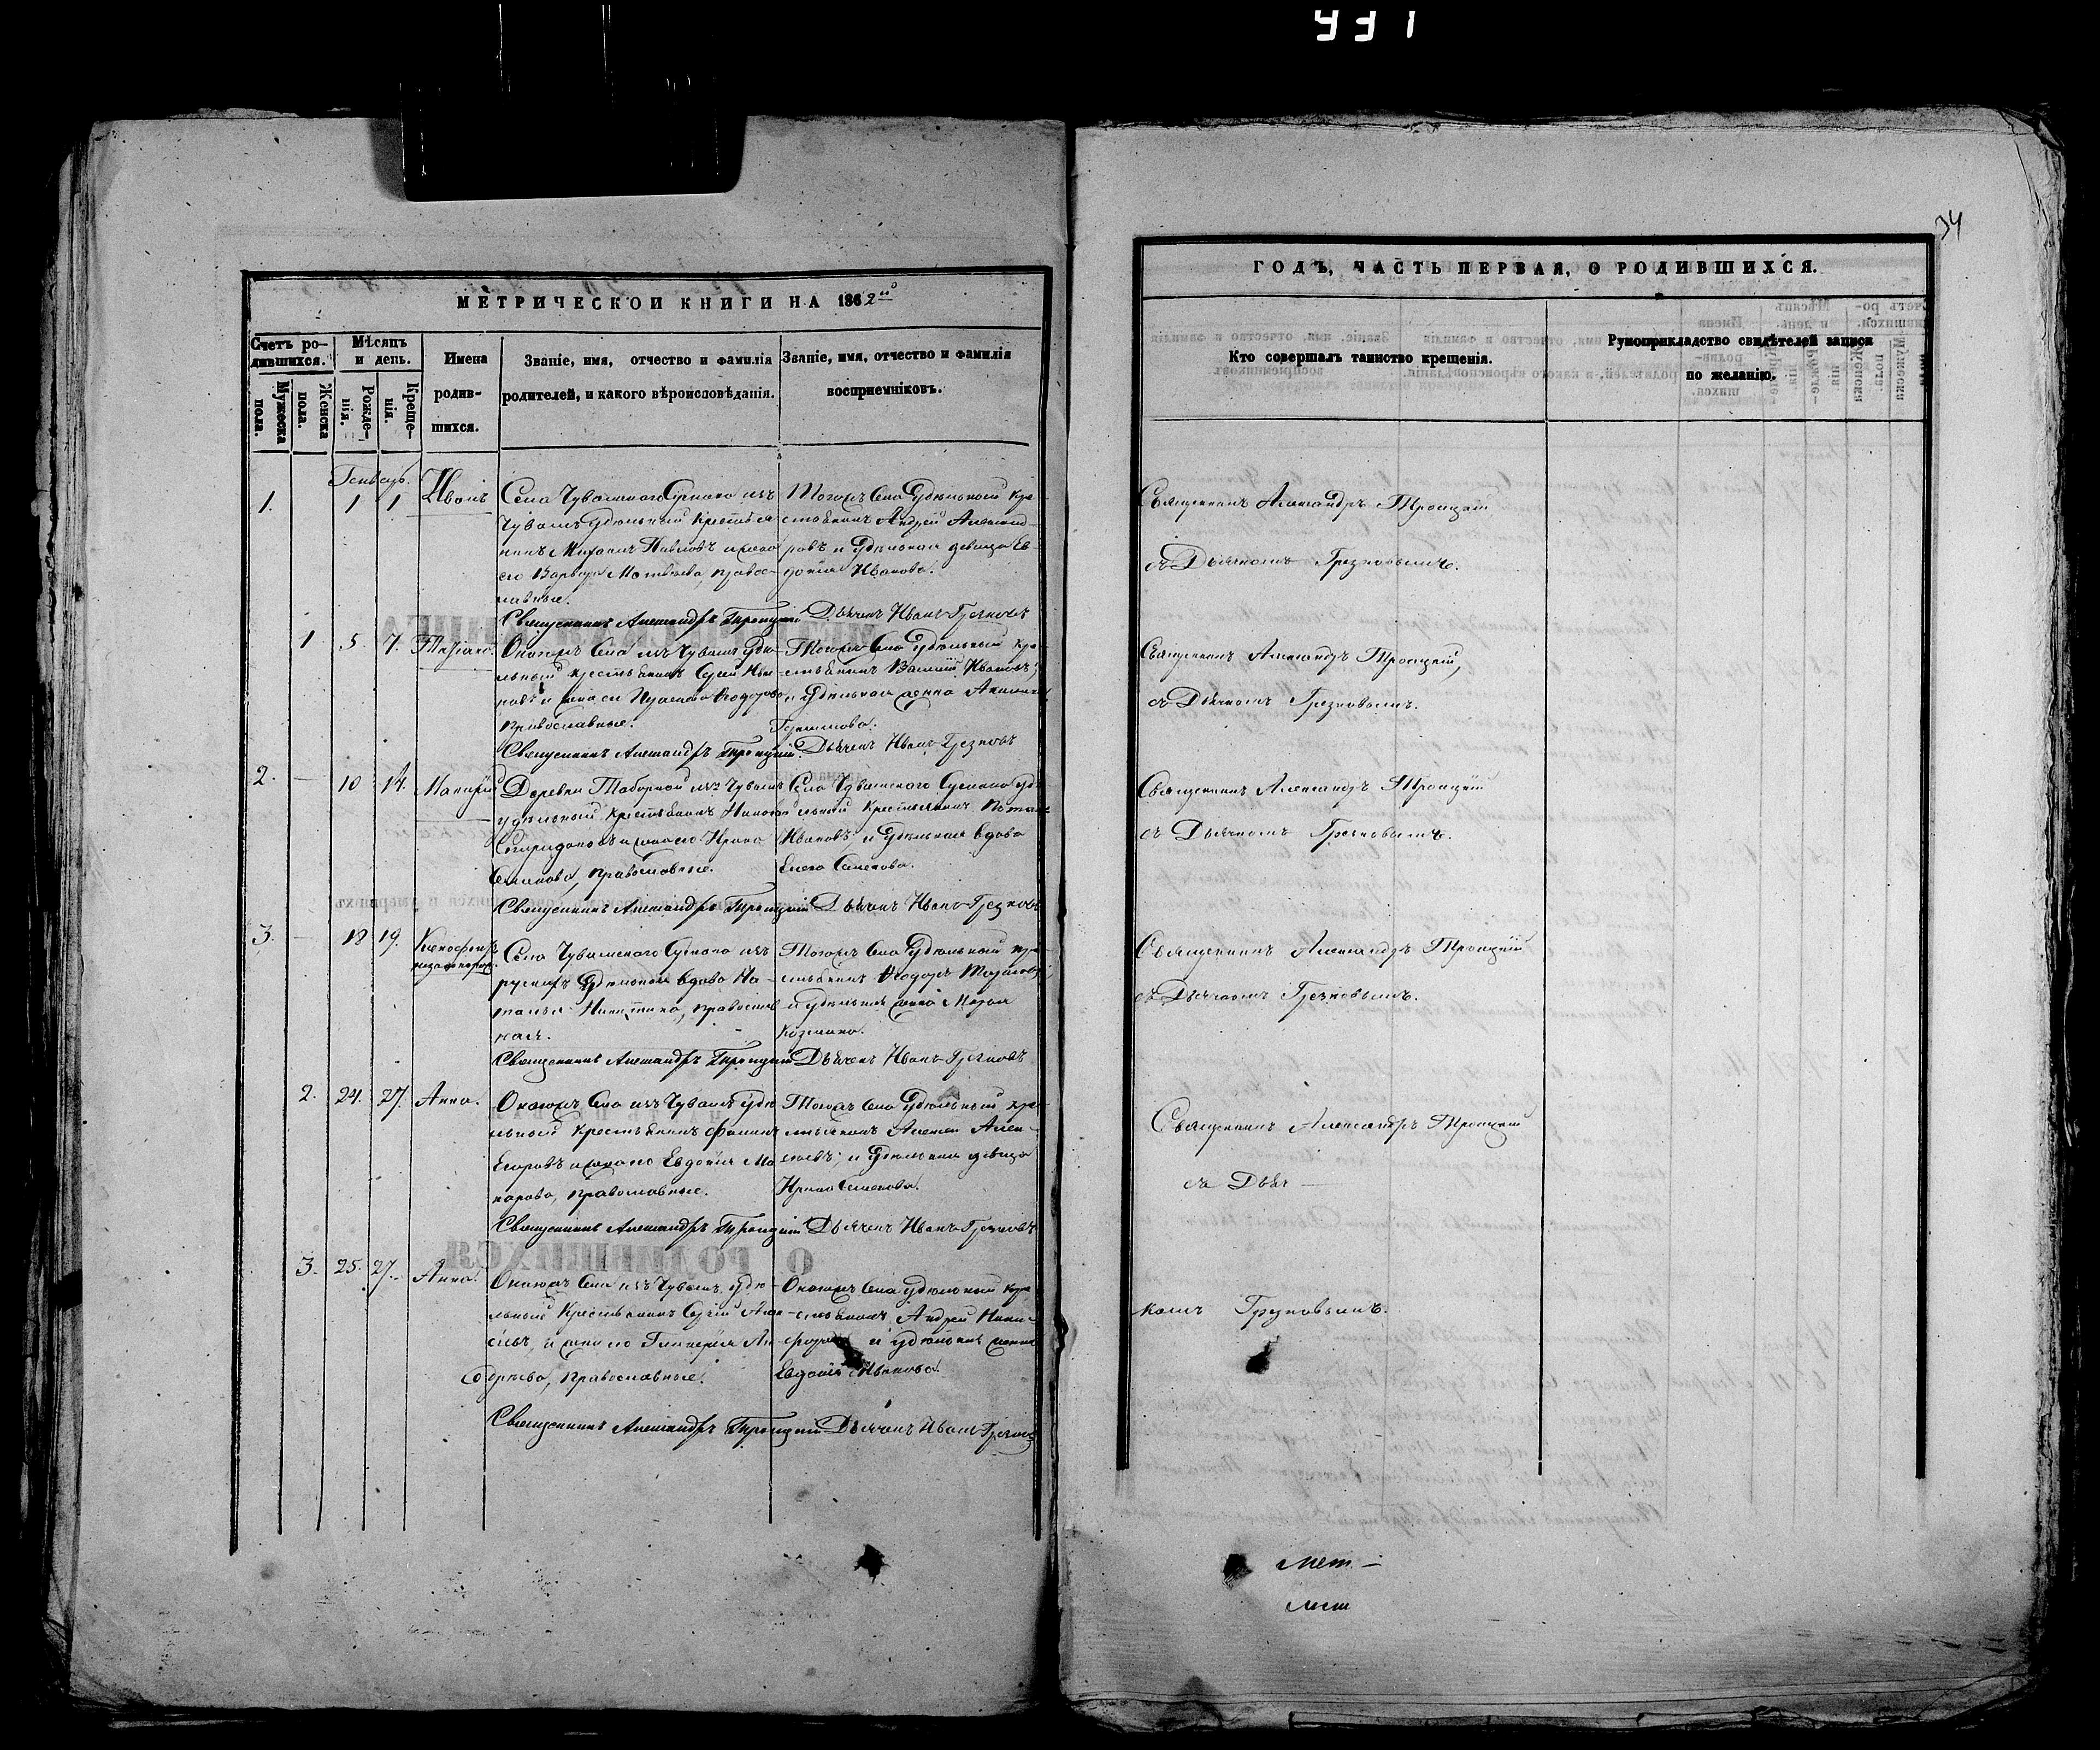 931
34
МЕТРИЧЕСКОЙ КНИГИ НА 1862й
Счетъ ро-
дившихся.
Мужеска
пола.
Женска
пола.
Мѣсяцъ
и день.
Рожде-
нія.
Креще-
нія.
Имена
родив-
шихся.
Званіе, имя, отчество и фамилія
родителей, и какого вѣроисповѣданія.
Званіе, имя, отчество и фамилія
воспріемниковъ.
Генварь.
1. 1 1 Иванъ
Села Чувашскаго Сускана изъ
Чувашъ Удѣльный крестья
нинъ Михаилъ Павловъ и жена
его Варвара Матвѣева, право-
лавные.
Тогожъ Села Удѣльный кре
стьянинъ Андрей Александ
ровъ и Удѣльная девица Ев-
докія Иванова.
Священникъ Александръ Троицкій Дьячекъ Иванъ Грезновъ
1 5. 7. Татіана.
Онагожъ Села изъ Чувашъ Удѣ
льный крестьянинъ Сергій Ива
новъ и жена его Ѳеодорова
Православные.
Тогожъ Села Удѣльный кре
стьянинъ Василій Ивановъ;
и Удѣльная женка Акилина
Священникъ Александръ Троицкій. Дьячекъ Иванъ Грезновъ
2. 10 14.
Деревни Таборной изъ Чувашъ
удѣльный крестьянинъ Никола
Спиридоновъ и жена его Ирина
Семенова, православные.
Села Чувашскаго Сускана удѣ
льный крестьянинъ
Ивановъ; и Удѣльная вдова
Елена Семенова.
Священникъ Александръ Троицкій Дьячекъ Иванъ Грезновъ
3. 18 19. Ксенофонтъ
незаконнор.
Села Чувашскаго Сускана изъ
русскихъ Удѣльная вдова На
талья Никитина, православ
ная.
Тогожъ Села Удѣльный кре
стьянинъ Ѳеодоръ
и удѣльная женка Марья
Козмина.
Священникъ Александръ Троицкій Дьячекъ Иванъ Грезновъ
2. 24. 27. Анна.
Онагожъ Села изъ Чувашъ Удѣ
льный крестьянинъ Филипъ
Егоровъ и жена его Евдокія Ма
карова, православные.
Тогожъ Села Удѣльный кре
стьянинъ Алексей Алек-
сеевъ; и Удѣльная девица
Ирина Семенова.
Священникъ Александръ Троицкій Дьячекъ Иванъ Грезновъ
3. 25. 27. Анна.
Онагожъ Села изъ Чувашъ Удѣ-
льный Крестьянинъ Сергій Алек
сѣевъ, и жена его Гликерія Ан
дреева, православные.
Онагожъ Села Удѣльный кре
стьянинъ Андрей Ники-
форовъ и удѣльная женка
Евдокія Иванова.
Священникъ Александръ Троицкій Дьячекъ Иванъ Грезновъ
ГОДЪ, ЧАСТЬ ПЕРВАЯ, О РОДИВШИХСЯ.
Кто совершалъ таинство крещенія.
Рукоприкладство свидѣтелей записи
по желанію.
Священникъ Александръ Троицкій
съ Дьячкомъ Грезновымъ.
Священникъ Александръ Троицкій,
съ Дьячкомъ Грезновымъ.
Священникъ Александръ Троицкій
съ Дьячкомъ Грезновымъ.
Священникъ Александръ Троицкій
съ Дьячкомъ Грезновымъ.
Священникъ Александръ Троицкій
съ Дьяч-
комъ Грезновымъ.